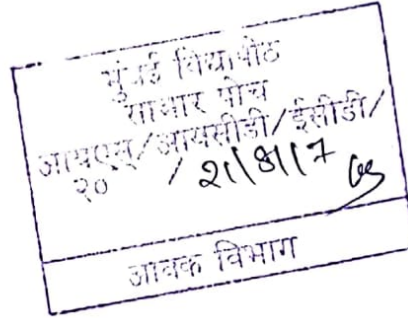 मुंबई विद्यापीठ
साभार पोच
आयएम्/आयसीडी/ईसीडी/
२० / 21/8/17
आवक विभाग